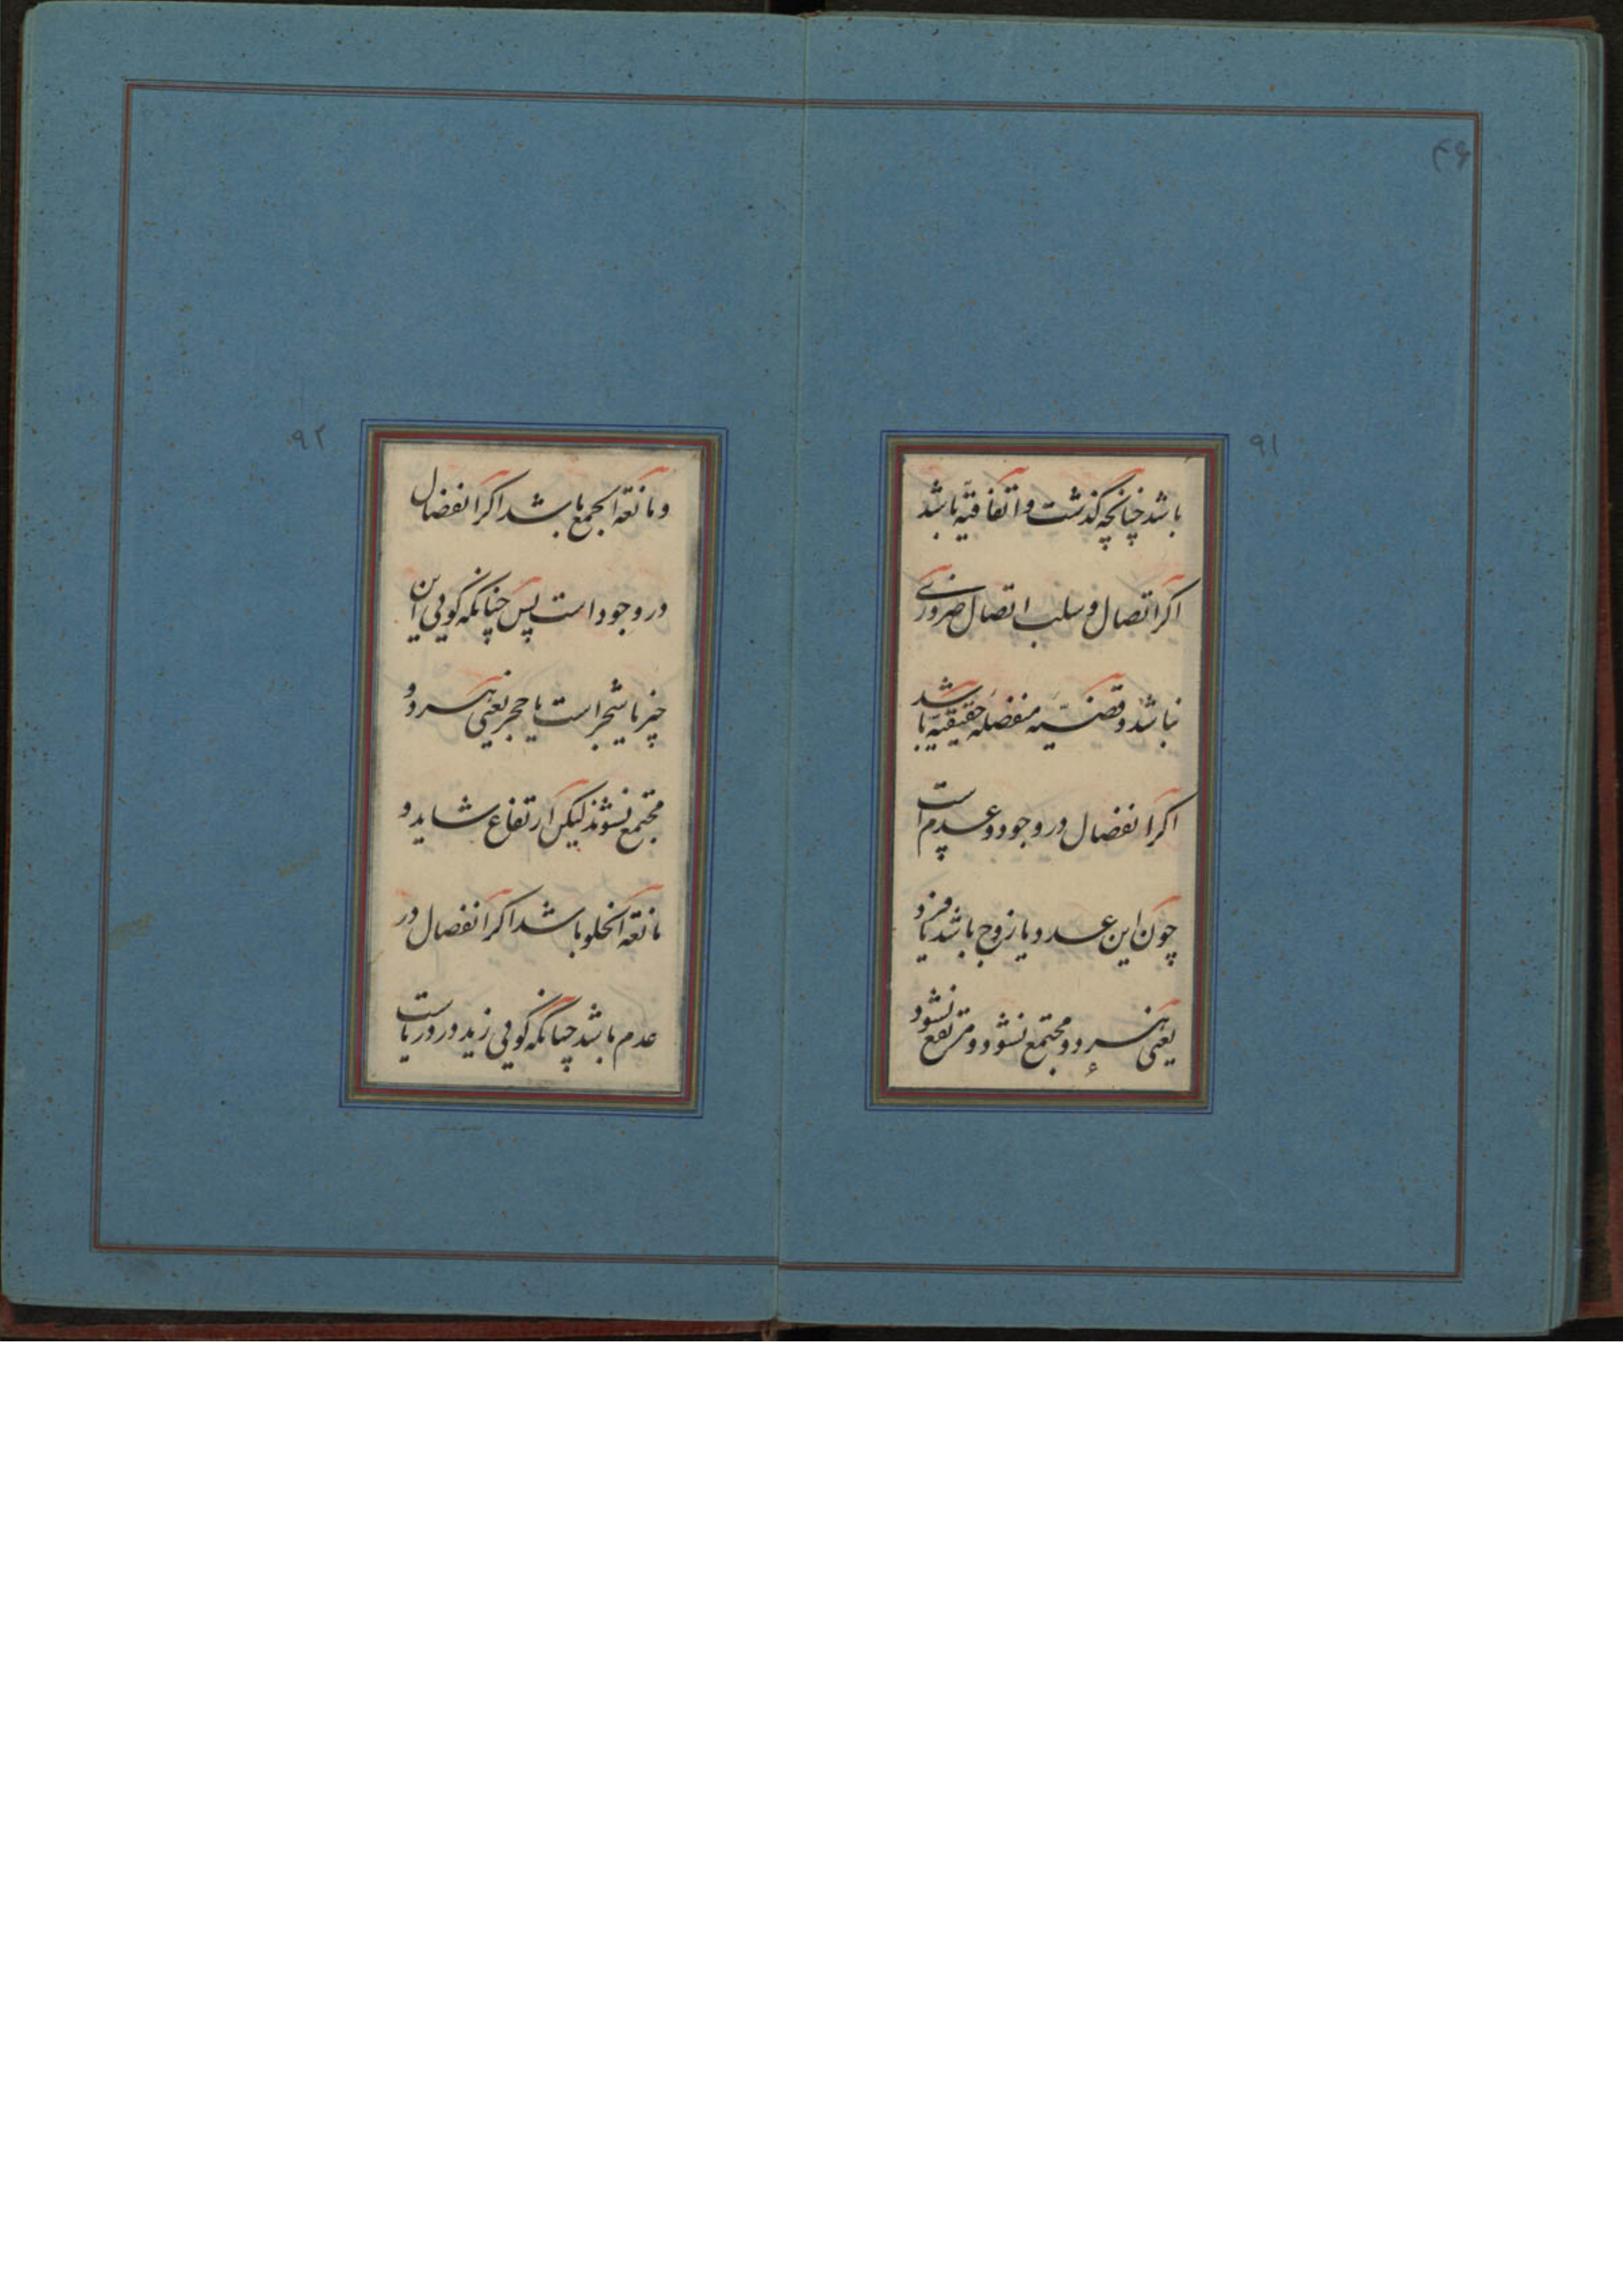 ۴۶
۹۱
باشد چنانچه گذشت و اتفاقیّه باشد
اگر اتصال و سلب اتصال ضروری
نباشد و قضیّه منفصله حقیقیّه باشد
اگر انفصال در وجود و عدم است
چون این عدد یا زوج باشد یا فرد
یعنی هر دو مجتمع نشود و مرتفع نشود
۹۲
و مانعة الجمع باشد اگر انفصال
در وجود است پس چنانکه گویی این
چیز یا شجر است یا حجر یعنی هر دو
مجتمع نشوند لیکن ارتفاع شاید و
مانعة الخلو باشد اگر انفصال در
عدم باشد چنانکه گویی زید در دریاست